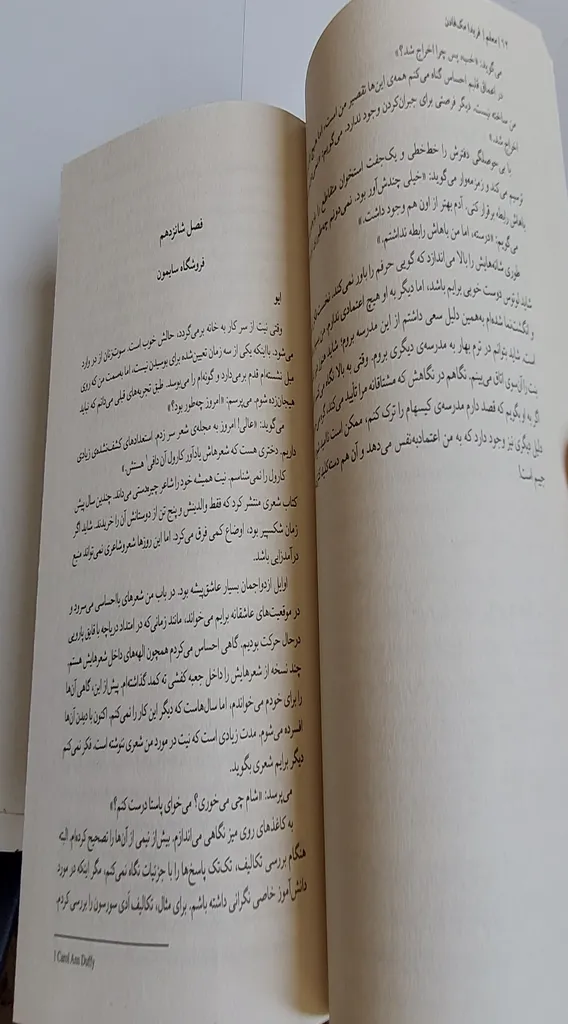 ۹۲ | معلم | فریدا مک‌فادن
می‌گوید: «خب، پس چرا اخراج شد؟»
در اعماق قلبم احساس گناه می‌کنم همه‌ی این‌ها تقصیر من است، اما هیچ
من ساخته نیست. دیگر فرصتی برای جبران‌کردن وجود ندارد. می‌گویم:
اخراج شد.»
با بی‌حوصلگی دفترش را خط‌خطی و یک‌جفت استخوان متقاطع را
ترسیم می‌کند و زمزمه‌وار می‌گوید: «خیلی چندش‌آور بود. نمی‌دونم
باهاش رابطه برقرار کنی. آدم بهتر از اون هم وجود داشت.»
می‌گویم: «درسته، اما من باهاش رابطه نداشتم.»
طوری شانه‌هایش را بالا می‌اندازد که گویی حرفم را باور نمی‌کند.
شاید لوترس دوست خوبی برایم باشد، اما دیگر به او هیچ اعتمادی ندارم.
و انگشت‌نما شده‌ام به‌همین دلیل سعی داشتم از این مدرسه بروم؛ شاید
است. شاید بتوانم در ترم بهار به مدرسه‌ی دیگری بروم. وقتی به بالا نگاه
آن‌سوی اتاق می‌بینم، نگاهم در نگاهش که مشتاقانه مرا تأیید می‌کند،
اگر به او بگویم که قصد دارم مدرسه‌ی کیسهام را ترک کنم، ممکن است
دلیل دیگری نیز وجود دارد که به من اعتمادبه‌نفس می‌دهد و آن هم
جیبم است!
فصل شانزدهم
فروشگاه سایمون
ایو
وقتی نیت از سر کار به خانه برمی‌گردد، حالش خوب است. سوت‌زنان از در وارد
می‌شود. بااینکه یکی از سه زمان تعیین‌شده برای بوسیدن نیست، اما به‌سمت من که روی
مبل نشسته‌ام قدم برمی‌دارد و گونه‌ام را می‌بوسد. طبق تجربه‌های قبلی می‌دانم که نباید
هیجان‌زده شوم. می‌پرسم: «امروز چه‌طور بود؟»
می‌گوید: «عالی! امروز به مجله‌ی شعر سر زدم. استعدادهای کشف‌نشده‌ی زیادی
داریم. دختری هست که شعرهاش یادآور کارول آن دافی¹ هستش.»
کارول را نمی‌شناسم. نیت همیشه خود را شاعر چیره‌دستی می‌داند. چندین سال پیش
کتاب شعری منتشر کرد که فقط والدینش و پنج تن از دوستانش آن را خریدند. شاید اگر
زمان شکسپیر بود، اوضاع کمی فرق می‌کرد. اما این روزها شعروشاعری نمی‌تواند منبع
درآمدزایی باشد.
اوایل ازدواجمان بسیار عاشق‌پیشه بود. در باب من شعرهای بااحساسی می‌سرود و
در موقعیت‌های عاشقانه برایم می‌خواند، مانند زمانی‌که در امتداد دریاچه با قایق پارویی
درحال حرکت بودیم. گاهی احساس می‌کردم همچون الهه‌های داخل شعرهایش هستم.
چند نسخه از شعرهایش را داخل جعبه کفشی ته کمد گذاشته‌ام. پیش‌از این، گاهی آن‌ها
را برای خودم می‌خواندم، اما سال‌هاست که دیگر این کار را نمی‌کنم. اکنون با دیدن آن‌ها
افسرده می‌شوم. مدت زیادی است که نیت در مورد من شعری ننوشته است. فکر نمی‌کنم
دیگر برایم شعری بگوید.
می‌پرسد: «شام چی می‌خوری؟ می‌خوای پاستا درست کنم؟»
به کاغذهای روی میز نگاهی می‌اندازم. بیش‌از نیمی از آن‌ها را تصحیح کرده‌ام. البته
هنگام بررسی تکالیف، تک‌تک پاسخ‌ها را با جزئیات نگاه نمی‌کنم، مگر اینکه در مورد
دانش‌آموز خاصی نگرانی داشته باشم. برای مثال، تکالیف آدی سورسون را بررسی کردم.
1 Carol Ann Duffy